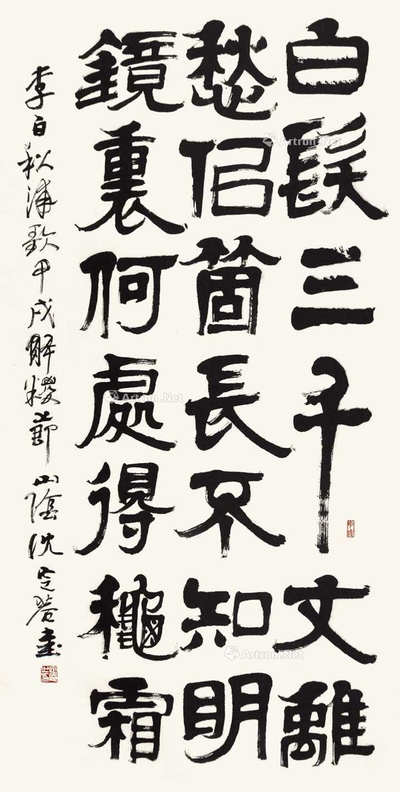 白髮三千丈離
愁佀箇長不知明
鏡裏何處得龝霜
李白秋浦歌甲戌解糉節山陰沈定菴書
Artron.Net
Artron.Net
Artron.Net